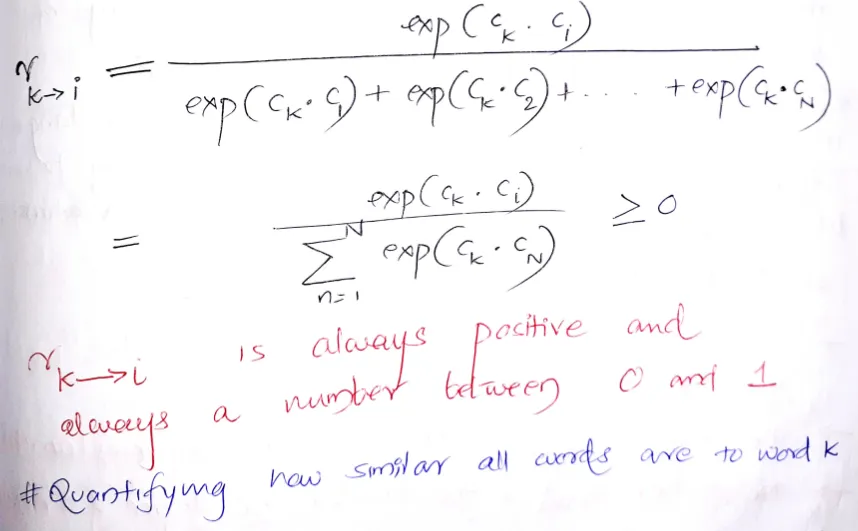 r k→i = exp(c_k · c_i) / exp(c_k · c_1) + exp(c_k · c_2) + . . . . + exp(c_k · c_N)
= exp(c_k · c_i) / ∑_{n=1}^{N} exp(c_k · c_N) ≥ 0
r k→i is always positive and
always a number between 0 and 1
# Quantifying how similar all words are to word k